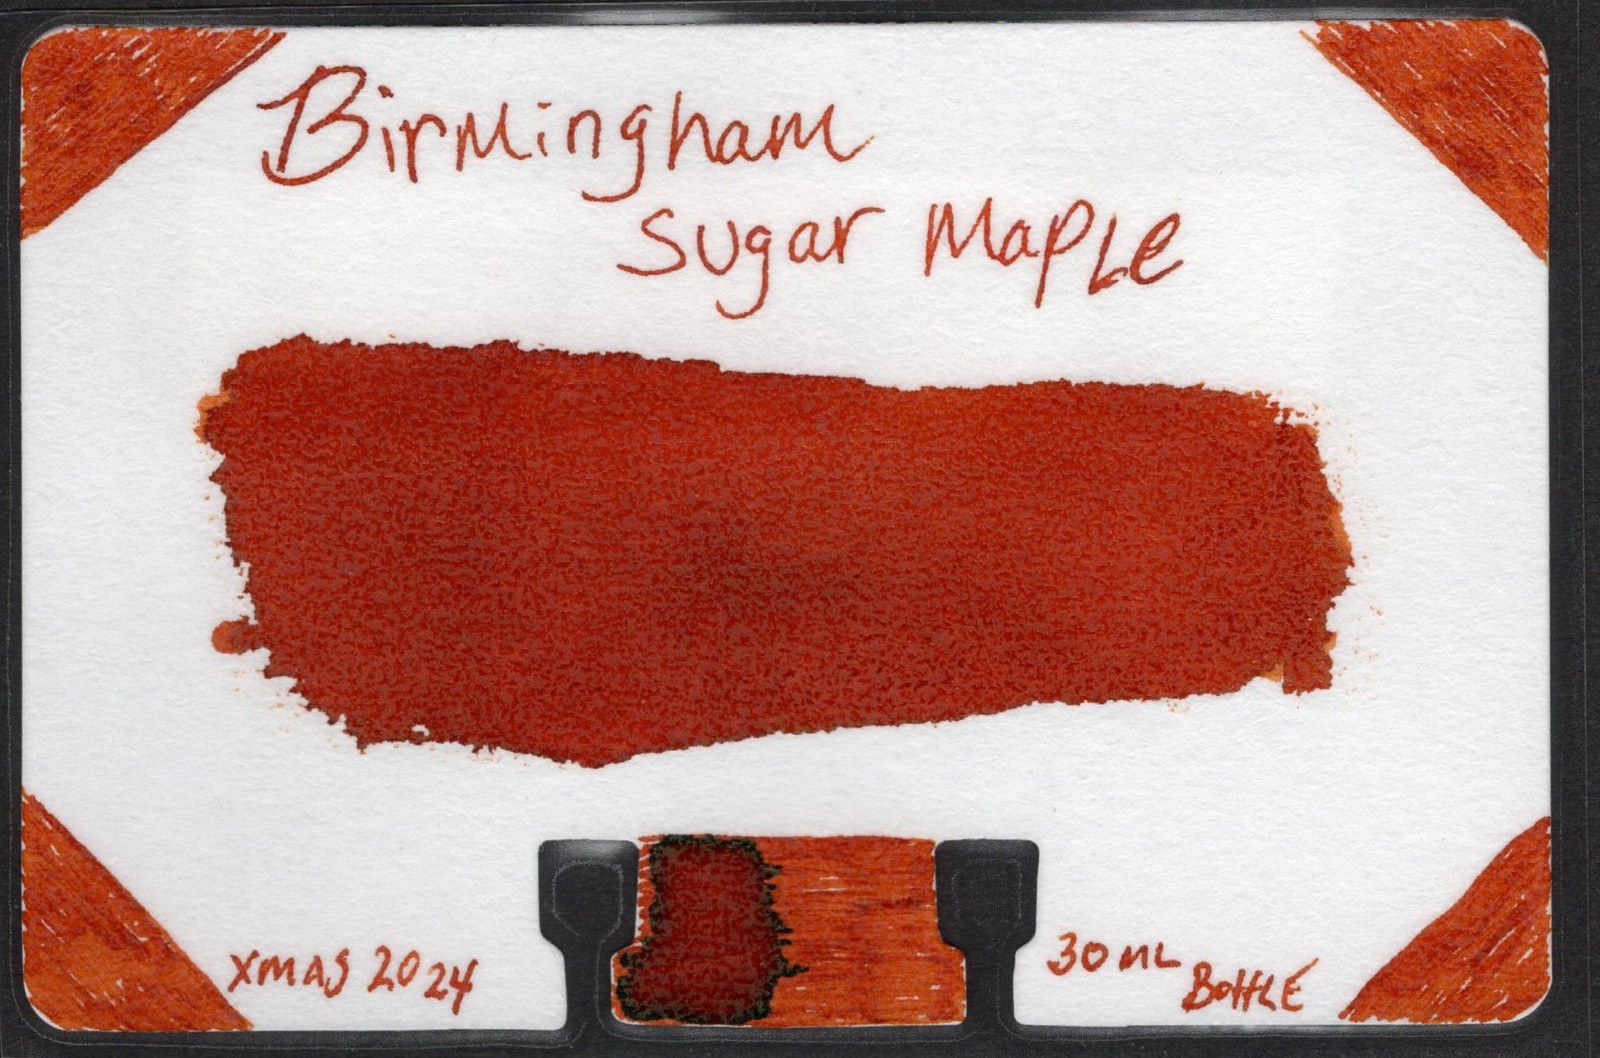 Birmingham
Sugar Maple
XMAS 2024
30 ML
BottLE